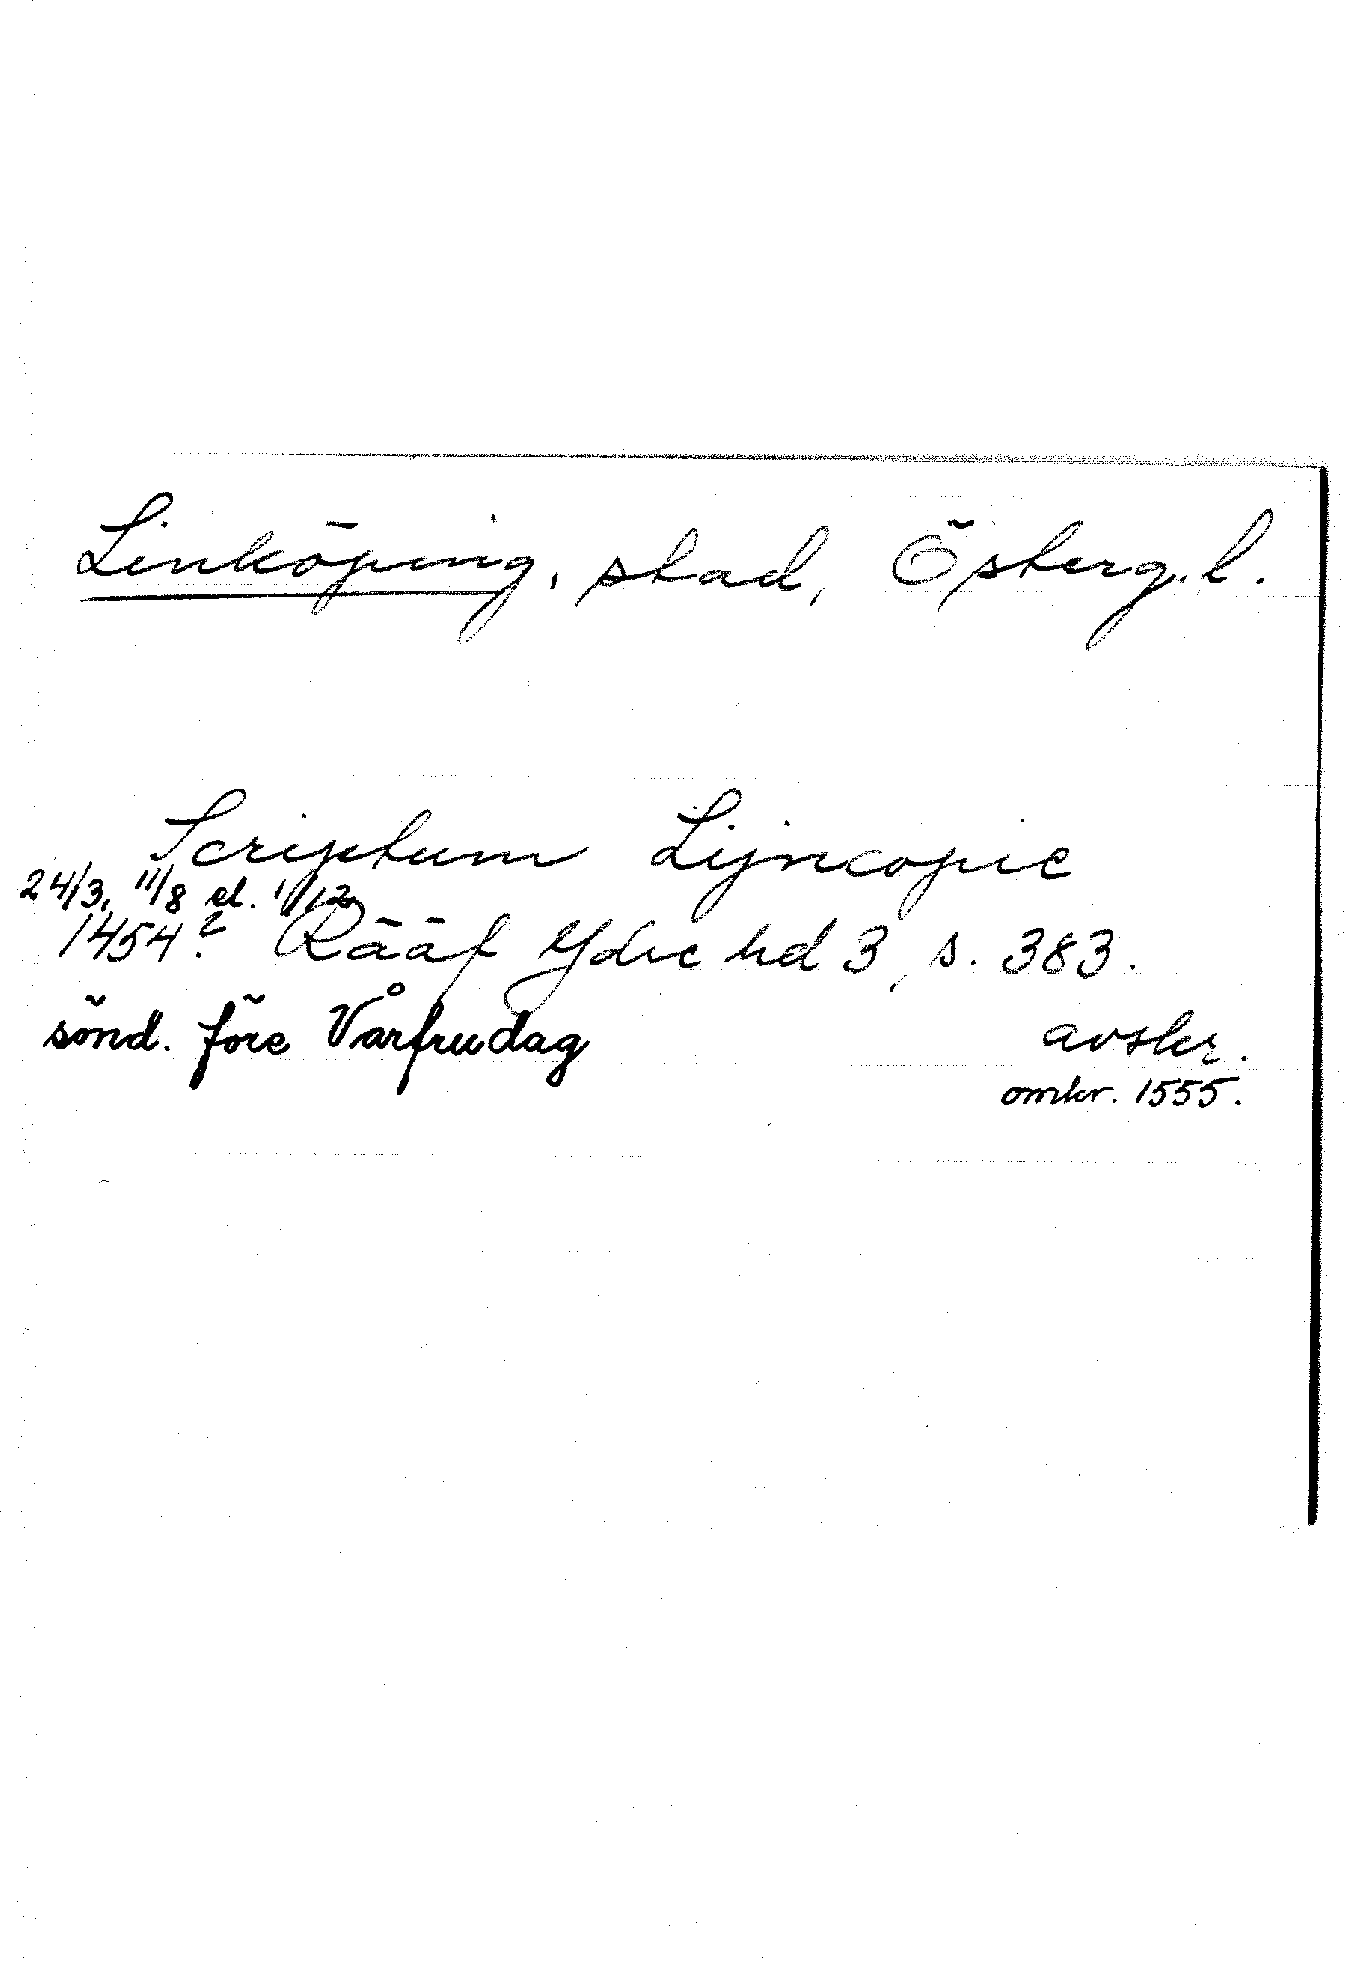 Linköping, stad, Österg.l.
Scriptum Lijncopie
24/3, 11/8 el. 1/12
1454? Rääf Ydre hd 3, s. 383.
sönd. före Vårfrudag
avskr.
omkr. 1555.